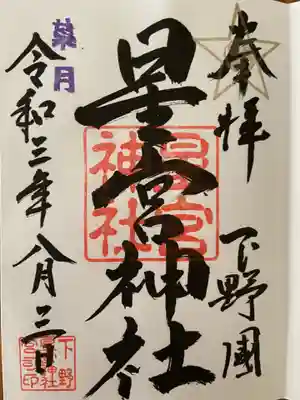 奉拝
下野國
星宮神社
星宮
神社
葉月
令和三年八月三日
下野
星宮神社
之印